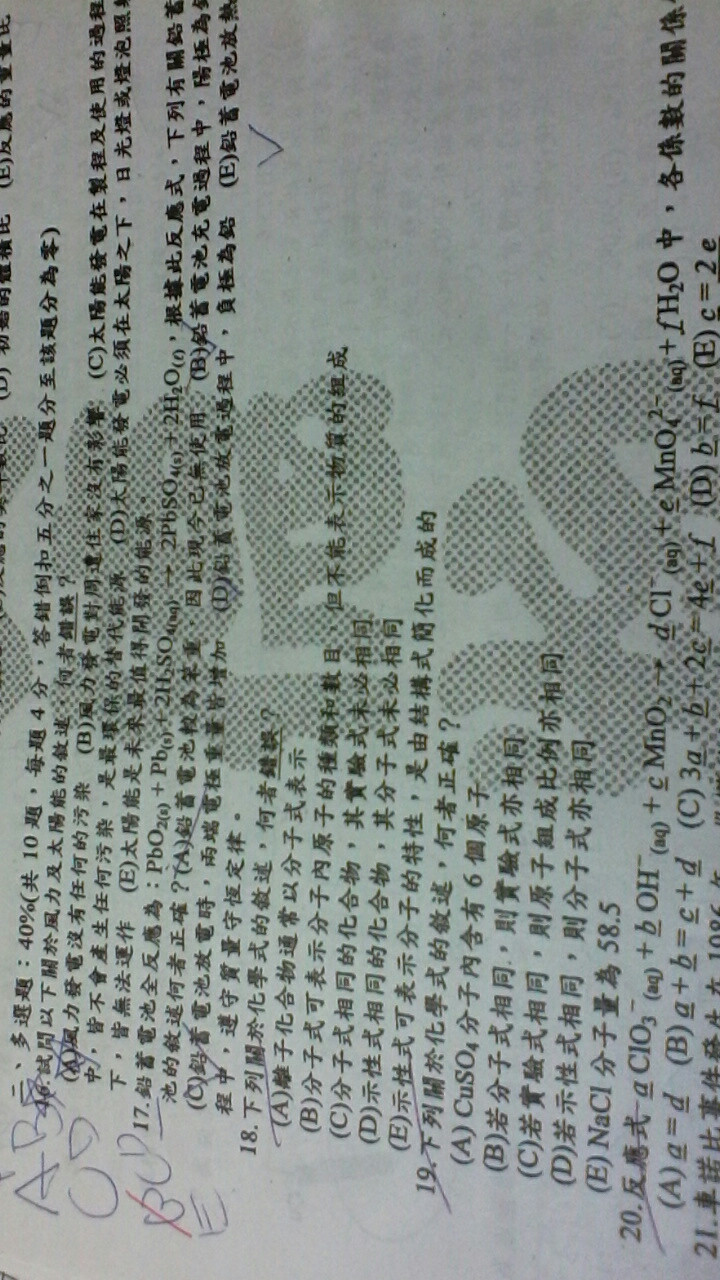 (D) 初始的體積比 (E)反應的重量比
二、多選題：40%(共 10 題，每題 4 分，答錯倒扣五分之一題分至該題分為零)
16.試問以下關於風力及太陽能的敘述，何者錯誤？
(A)風力發電沒有任何的污染 (B)風力發電對周遭住家沒有影響 (C)太陽能發電在製程及使用的過程
中，皆不會產生任何污染，是最環保的替代能源 (D)太陽能發電必須在太陽之下，日光燈或燈泡照射
下，皆無法運作 (E)太陽能是未來最值得開發的能源。
17.鉛蓄電池全反應為：PbO2(s) + Pb(s) + 2H2SO4(aq) → 2PbSO4(s) + 2H2O(ℓ)，根據此反應式，下列有關鉛蓄
池的敘述何者正確？(A)鉛蓄電池較為笨重，因此現今已無使用 (B)鉛蓄電池充電過程中，陽極為鉛
(C)鉛蓄電池放電時，兩端電極重量皆增加 (D)鉛蓄電池放電過程中，負極為鉛 (E)鉛蓄電池放熱
程中，遵守質量守恆定律。
18.下列關於化學式的敘述，何者錯誤？
(A)離子化合物通常以分子式表示
(B)分子式可表示分子內原子的種類和數目，但不能表示物質的組成
(C)分子式相同的化合物，其實驗式未必相同
(D)示性式相同的化合物，其分子式未必相同
(E)示性式可表示分子的特性，是由結構式簡化而成的
19.下列關於化學式的敘述，何者正確？
(A) CuSO4 分子內含有 6 個原子
(B)若分子式相同，則實驗式亦相同
(C)若實驗式相同，則原子組成比例亦相同
(D)若示性式相同，則分子式亦相同
(E) NaCl 分子量為 58.5
20.反應式 a ClO3⁻(aq) + b OH⁻(aq) + c MnO2 → d Cl⁻(aq) + e MnO4²⁻(aq) + f H2O 中，各係數的關係
(A) a = d (B) a + b = c + d (C) 3a + b + 2c = 4e + f (D) b = f (E) c = 2e
21.車諾比事件發生在 1986 年